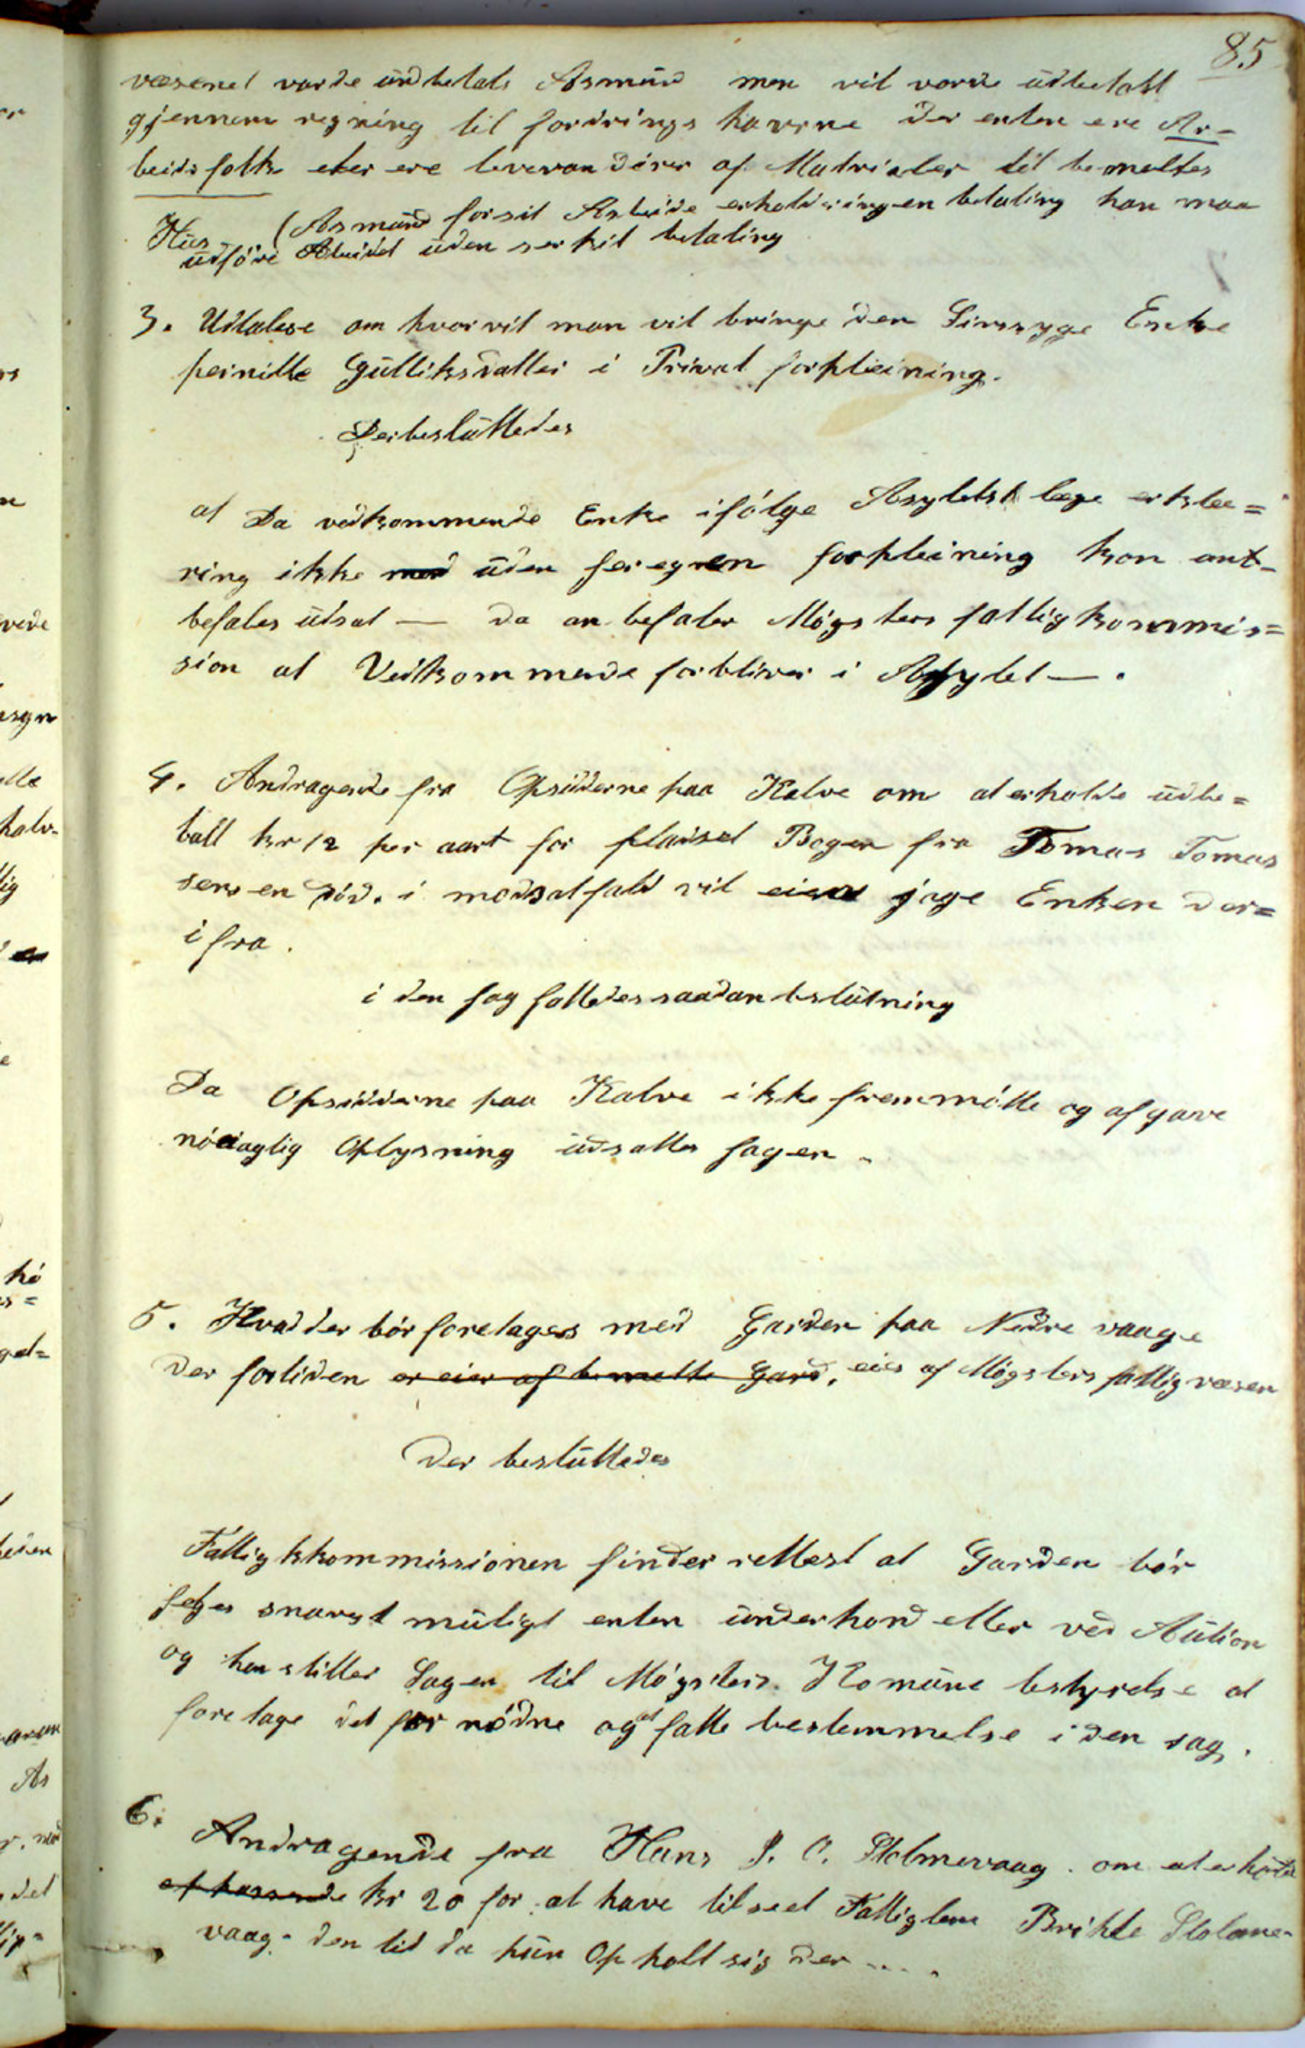 85
væsenet varde üdbetalt Asmünd men vil vorde üdbetalt
gjennem regning til fordrings havrne der enten ere Ar-
beidsfolk eler ere leverandører af Matrialer til bemeltes
Hus (Asmünd forsit Arbeide erholder ingen betaling han maa
üdføre Abeidet üden serkil betaling
3. Udtalese om hvorvit man vil bringe den Sinssyge Enke
pernille Gülliksdatter i Privat forpleining.
Derbeslüttedes
at Da vedkommende Enke ifølge Asylets læge erklæ=
ring ikke üden forpleining kan ant-
befales üdsat — da anbefaler Møgsters fattigkommis=
sion at Vedkommende forbliver i Asylet —.
4. Andragende fra Opsidderne paa Kalve om at erholde üdbe=
talt kr 12 per aart for pladset Bogen fra Tomas Tomas
sens en død. i modsatfald vil jage Enken der=
ifra.
i den sag fattedes saadan beslütning
Da Opsidderne paa Kalve ikke fremmøtte og afgave
nøiaglig Oplysning üdsattes sagen.
5. Hvad der bør foretages med Garden paa Nedre vaage
der fortiden er eier af bemelte Gard, eies af Møgsters fattigvæsen
Der beslüttedes
Fattigkkommissionen finder rettest at Garden bør
selges snarest müligt enten ünderhond eller ved Aütion
og henstiller Sagen til Møgsters Komüne bestyrelse at
foretage det for nødne og at fatte bestemmelse i den sag.
6. Andragende fra Hans J. O. Stolmevaag om at erholde
kr 20 for at have tilseet Fattiglem Brithe Stolme-
vaag. den tid da hün Opholt sig der ....